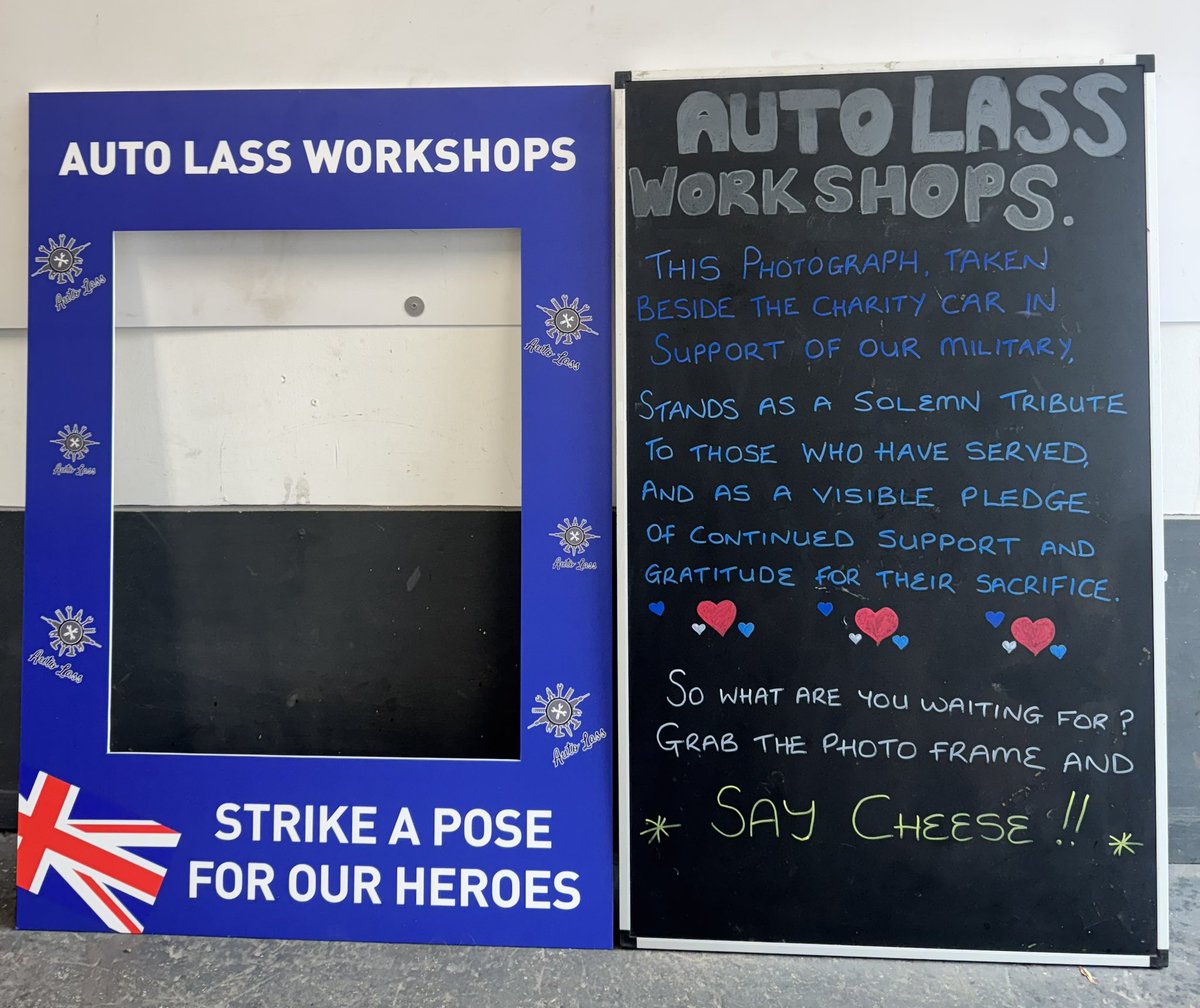 AUTO LASS WORKSHOPS
Auto Lass
Auto Lass
Auto Lass
Auto Lass
Auto Lass
Auto Lass
STRIKE A POSE
FOR OUR HEROES
AUTO LASS
WORKSHOPS.
THIS PHOTOGRAPH, TAKEN
BESIDE THE CHARITY CAR IN
SUPPORT OF OUR MILITARY,
STANDS AS A SOLEMN TRIBUTE
TO THOSE WHO HAVE SERVED,
AND AS A VISIBLE PLEDGE
OF CONTINUED SUPPORT AND
GRATITUDE FOR THEIR SACRIFICE.
SO WHAT ARE YOU WAITING FOR?
GRAB THE PHOTO FRAME AND
* SAY CHEESE!! *